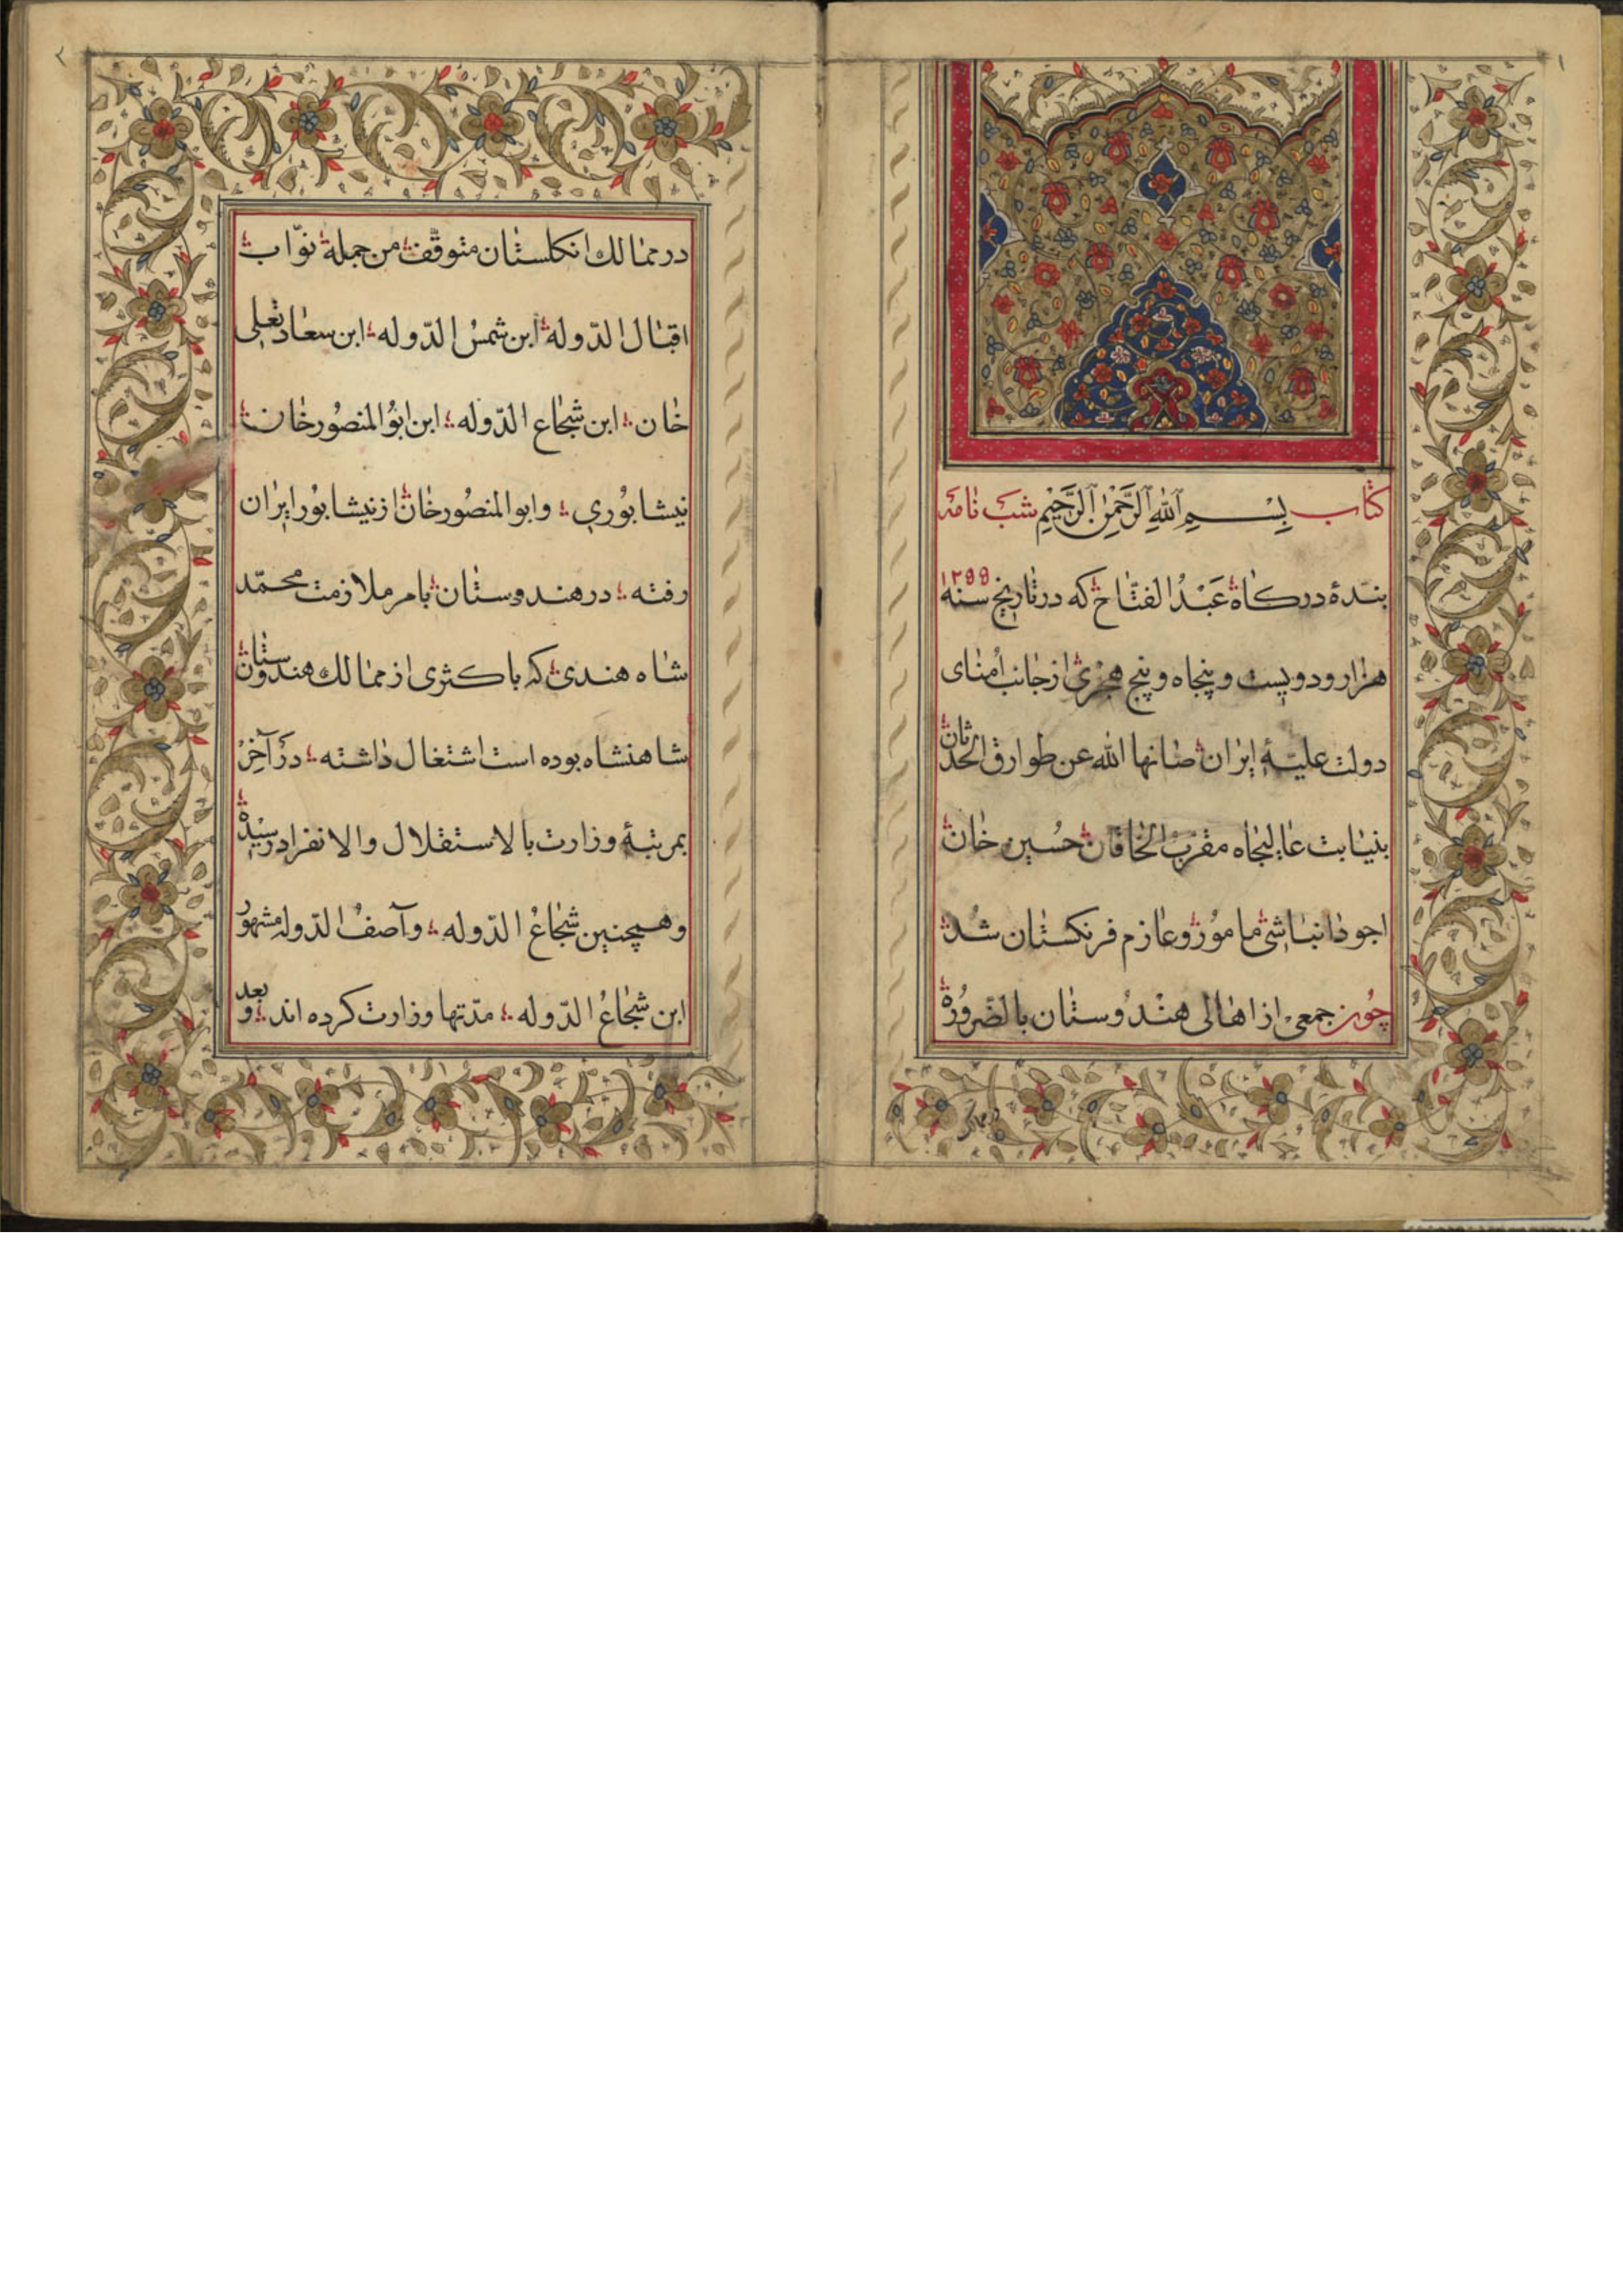 ۱
كتاب بِسْمِ ٱللّٰهِ ٱلرَّحْمٰنِ ٱلرَّحِيْمِ شب نامهٔ
بندهٔ درکاه عَبْدُ الفتّاح که در تاریخ سنهٔ ۱۲۵۵
هزار و دویست و پنجاه و پنج هجری از جانب اُمنای
دولت علیّهٔ ایران صانها الله عن طوارق الحدثان
بنیابت عالیجاه مقرّب الخاقان حُسین خان
اجودانباشی مامور و عازم فرنکستان شد
چون جمعی از اهالی هندوستان بالضّرورة
۲
در ممالك انكلستان متوقّف من جملة نوّاب
اقبال الدّولة ابن شمسُ الدّوله ابن سعادتعلی
خان ابن شجاع الدّوله ابن ابوُ المنصُور خان
نیشابوُری وابو المنصُور خان از نیشابوُر ایران
رفته در هندوستان بامر ملازمت محمّد
شاه هندی که باکثری از ممالك هندوستان
شاهنشاه بوده است اشتغال داشته در آخِر
بمرتبهٔ وزارت بالاستقلال والانفراد رسیده
وهمچنین شجاعُ الدّوله وآصفُ الدّوله مشهور
ابن شجاعُ الدّوله مدّتها وزارت کرده اند وبعد